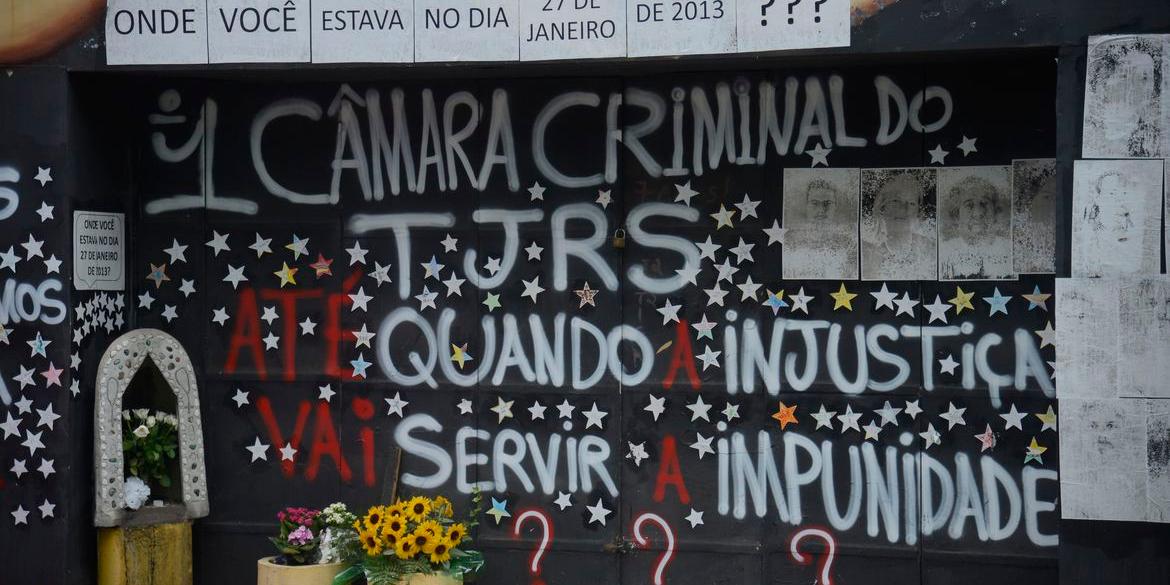 ONDE VOCÊ ESTAVA NO DIA 27 DE JANEIRO DE 2013 ???
1 CÂMARA CRIMINAL DO
TJRS
ATÉ QUANDO A INJUSTIÇA
VAI SERVIR A IMPUNIDADE
? ? ?
ONDE VOCÊ
ESTAVA NO DIA
27 DE JANEIRO
DE 2013?
MOS